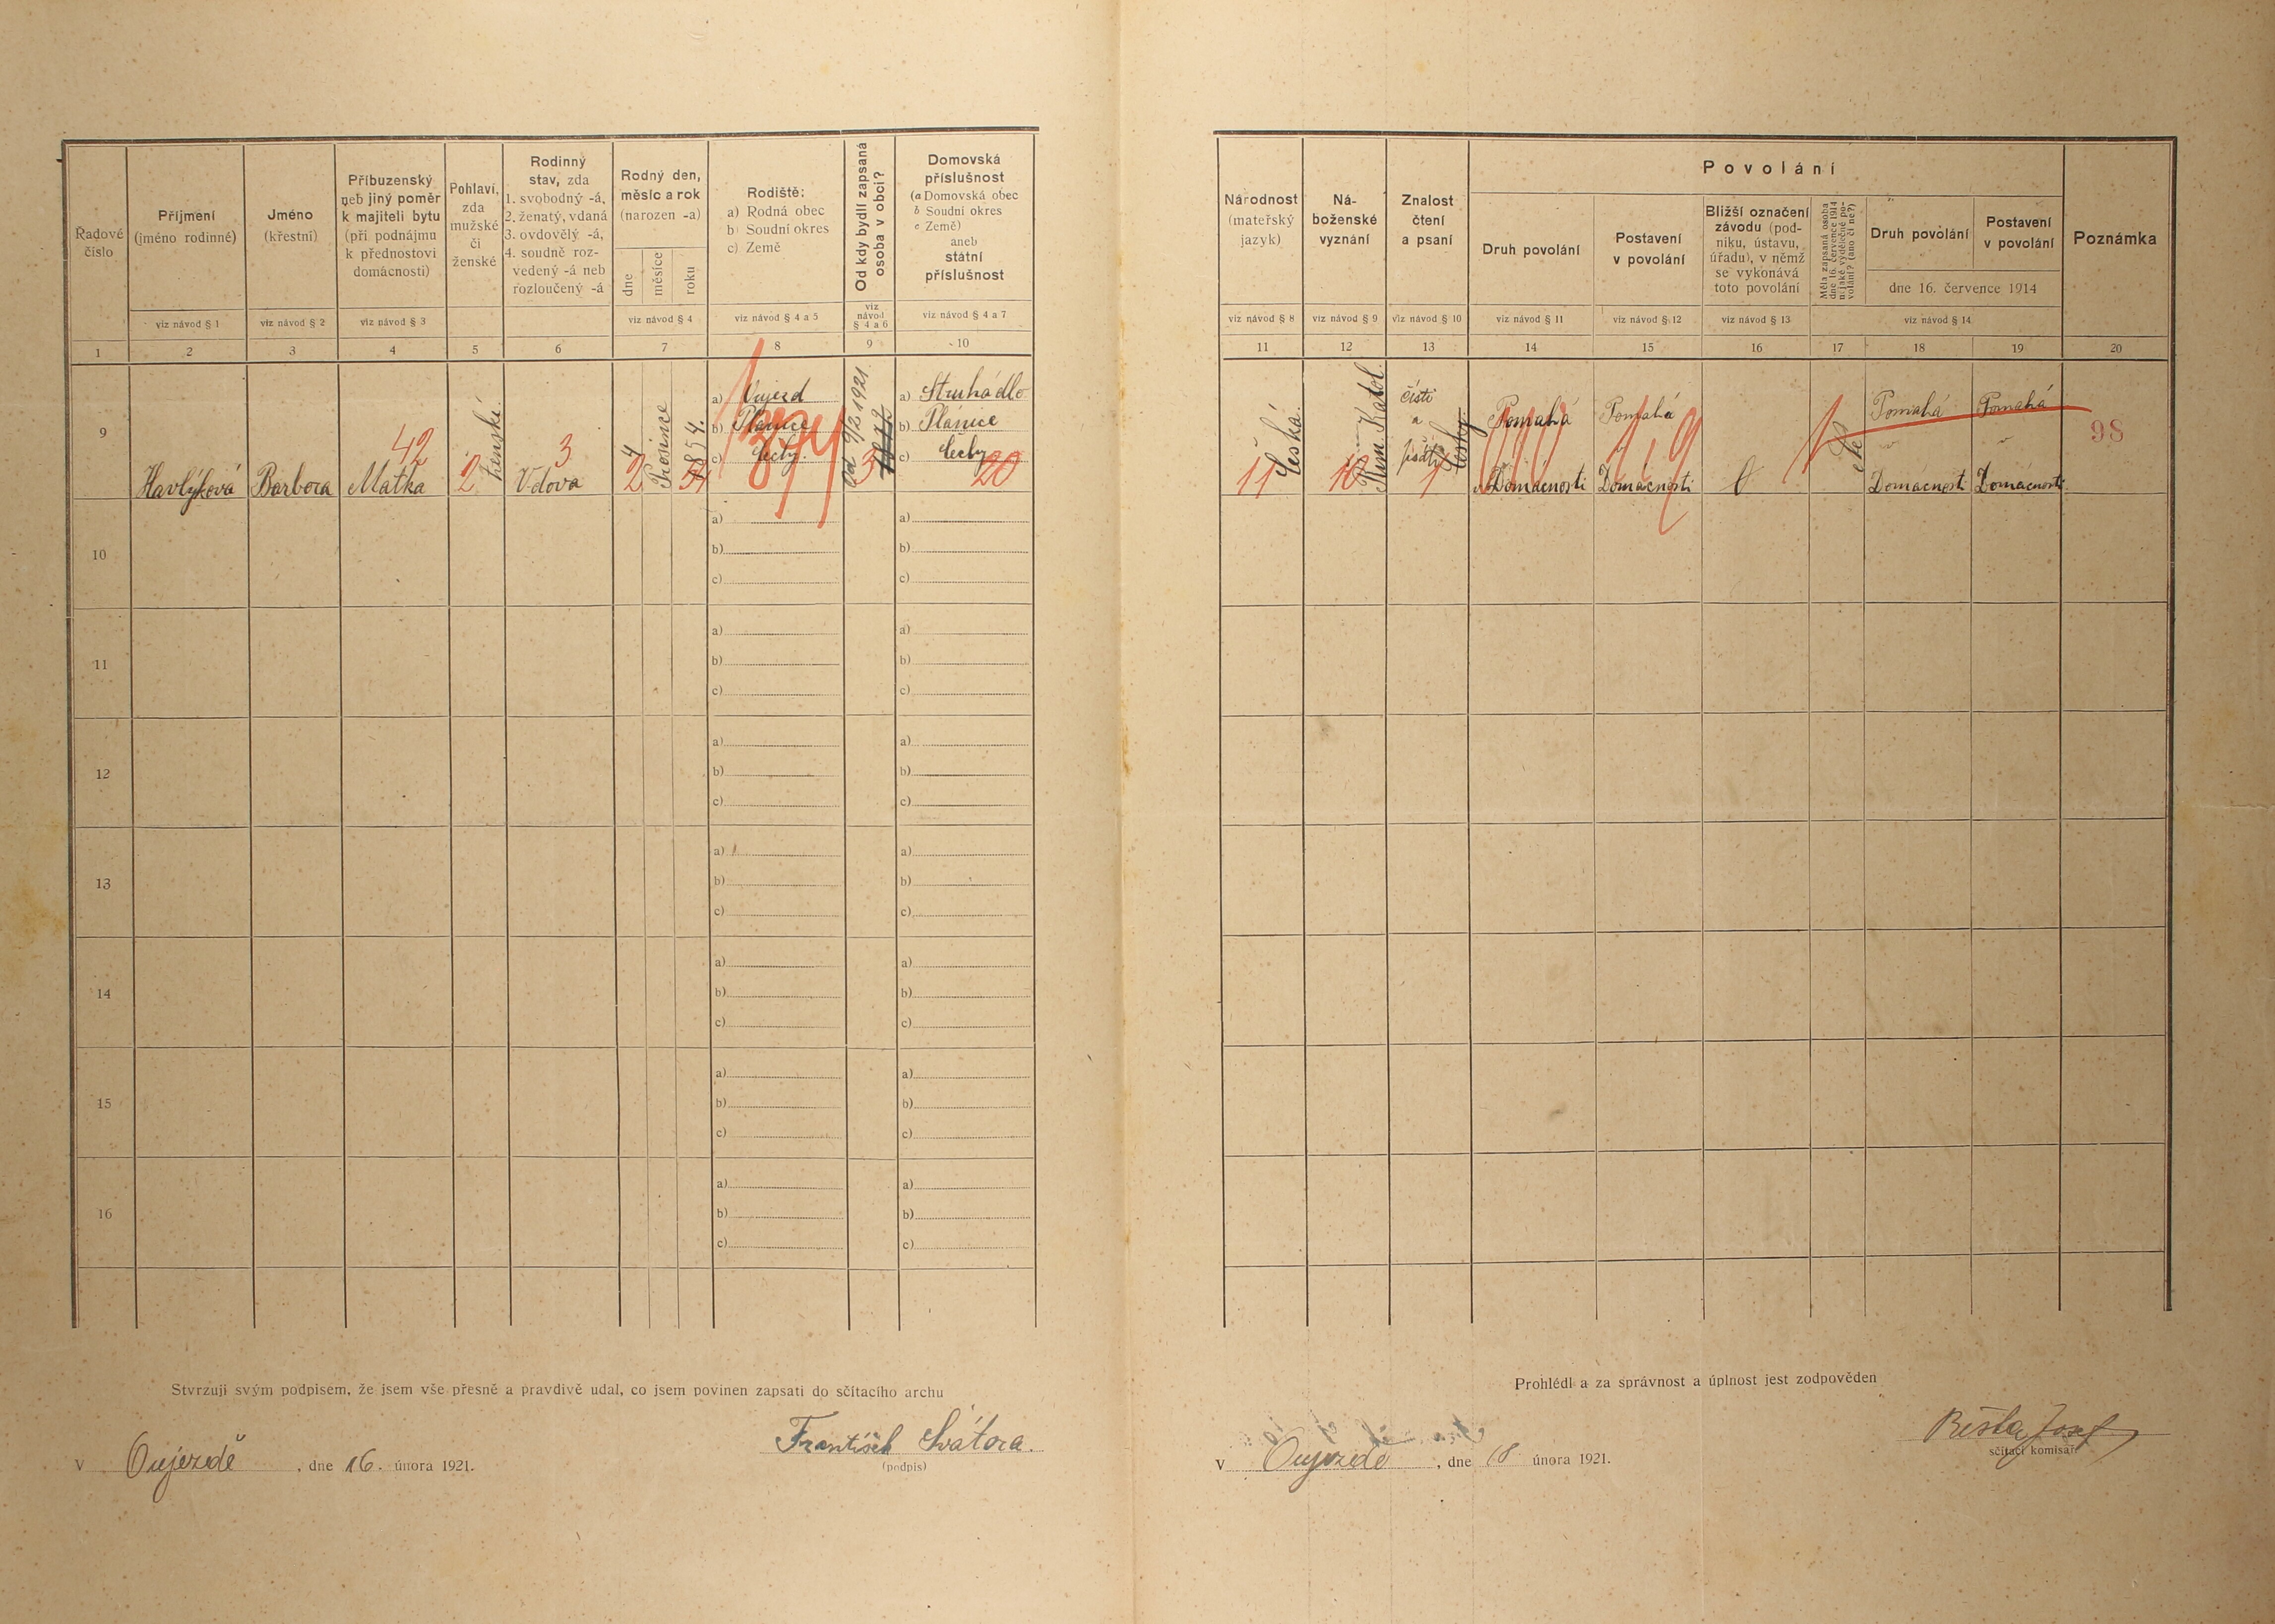 Řadové
číslo
Příjmení
(jméno rodinné)
viz návod § 1
Jméno
(křestní)
viz návod § 2
Příbuzenský
neb jiný poměr
k majiteli bytu
(při podnájmu
k přednostovi
domácnosti)
viz návod § 3
Pohlaví,
zda
mužské
či
ženské
Rodinný
stav, zda
1. svobodný -á,
2. ženatý, vdaná
3. ovdovělý -á,
4. soudně roz-
vedený -á neb
rozloučený -á
Rodný den,
měsíc a rok
(narozen -a)
dne
měsíce
roku
viz návod § 4
Rodiště:
a) Rodná obec
b) Soudní okres
c) Země
viz návod § 4 a 5
Od kdy bydlí zapsaná
osoba v obci?
viz
návod
§ 4 a 6
Domovská
příslušnost
(a Domovská obec
b Soudní okres
c Země)
aneb
státní
příslušnost
viz návod § 4 a 7
1 2 3 4 5 6 7 8 9 10
9
Havlýková
Barbora
42
Matka
2
ženské.
3
Vdova
4
2
Prosince
1854.
54
a) Vujezd
b) Plánice
c) Čechy.
874
od 9/2 1921
3
a) Struhadlo
b) Plánice
c) Čechy
20
10
a)
b)
c)
11
a)
b)
c)
12
a)
b)
c)
13
a)
b)
c)
14
a)
b)
c)
15
a)
b)
c)
16
a)
b)
c)
a)
b)
c)
a)
b)
c)
a)
b)
c)
a)
b)
c)
a)
b)
c)
a)
b)
c)
a)
b)
c)
Stvrzuji svým podpisem, že jsem vše přesně a pravdivě udal, co jsem povinen zapsati do sčítacího archu
František Svátora.
(podpis)
V Oujezdě, dne 16. února 1921.
Národnost
(mateřský
jazyk)
viz návod § 8
Ná-
boženské
vyznání
viz návod § 9
Znalost
čtení
a psaní
viz návod § 10
Povolání
Druh povolání
viz návod § 11
Postavení
v povolání
viz návod § 12
Bližší označení
závodu (pod-
niku, ústavu,
úřadu), v němž
se vykonává
toto povolání
viz návod § 13
Měla zapsaná osoba
dne 16. července 1914
nějaké výdělečné po-
volání? (ano či ne?)
Druh povolání
Postavení
v povolání
dne 16. července 1914
viz návod § 14
Poznámka
11 12 13 14 15 16 17 18 19 20
Česká.
11
Řím. Katol.
10
čísti
a
psáti
česky.
1
Pomahá
v Domácnosti
Pomahá
v
Domácnosti
1,9
0
1
Ne
Pomahá
v
Domácnosti
Pomahá
v
Domácnosti
98
Prohlédl a za správnost a úplnost jest zodpověden
Běšta Josef
sčítací komisař
V Oujezdě, dne 18 února 1921.